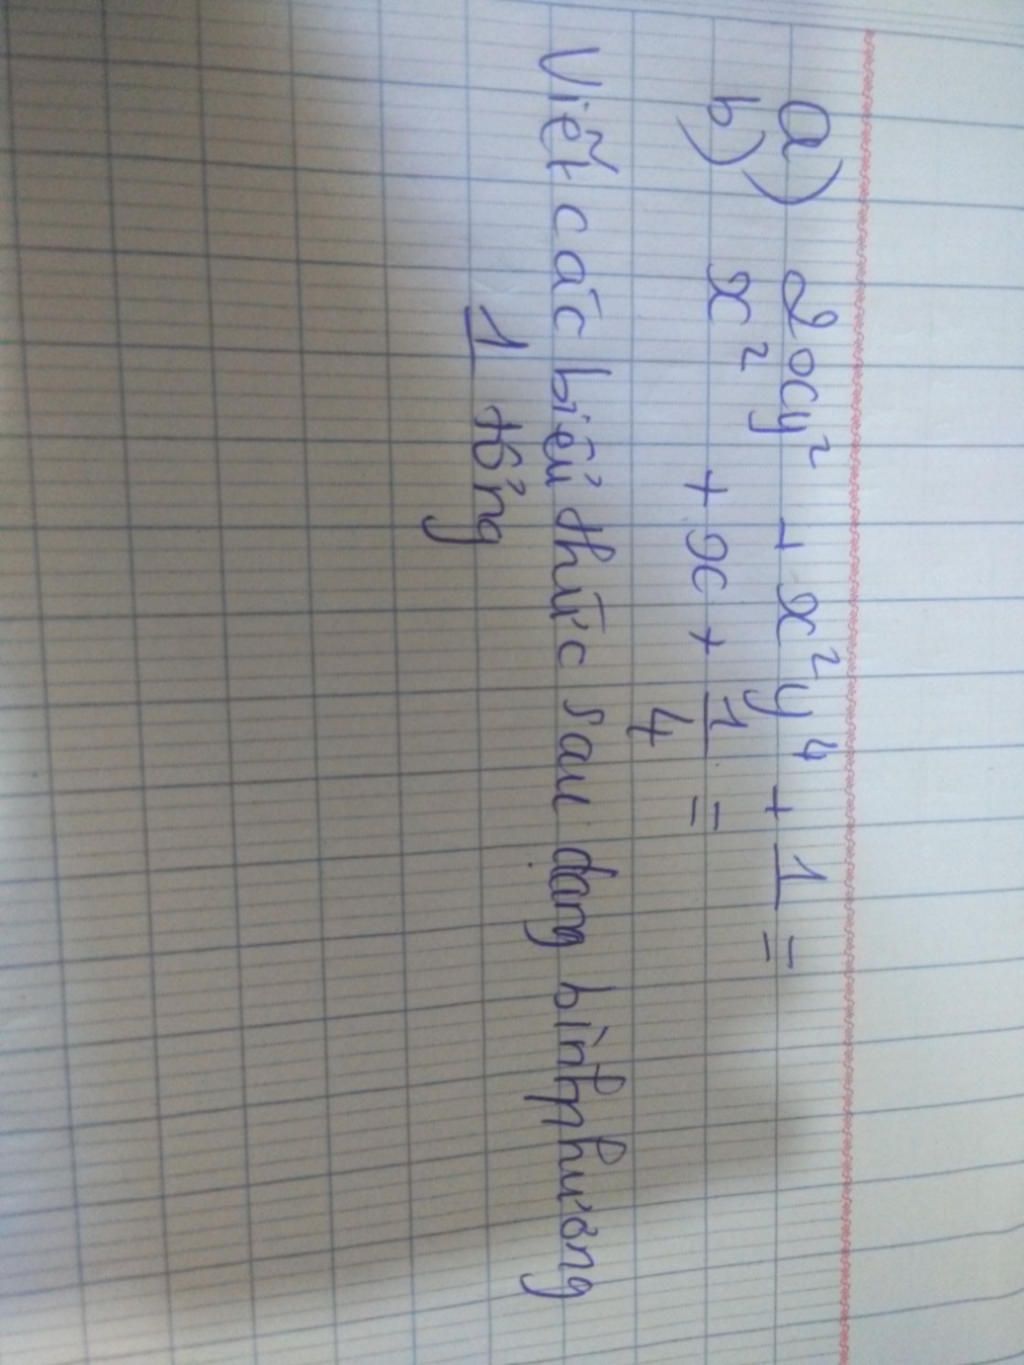 a) 2xy² + x²y⁴ + 1 =
b) x² + x + 1/4 =
Viết các biểu thức sau dạng bình phương
1 tổng